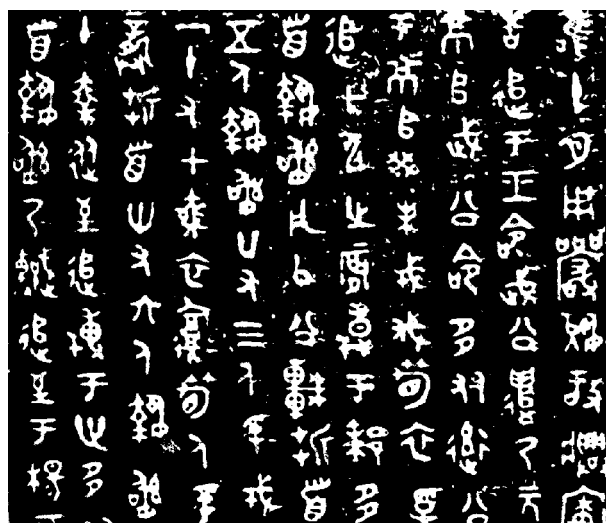 唯十月用玁狁放興廣
告追于王命武公遣乃元
京𠂤武公命多友率公
于京𠂤癸未戎伐筍衣孚
追甲申之辰搏于郱多
首執訊凡以公車折首
五人執訊廿又三人孚戎
一十又七乘衣復筍人孚
折首卅又六人執訊
十乘從至追搏于世多
首執訊乃軼追至于楊